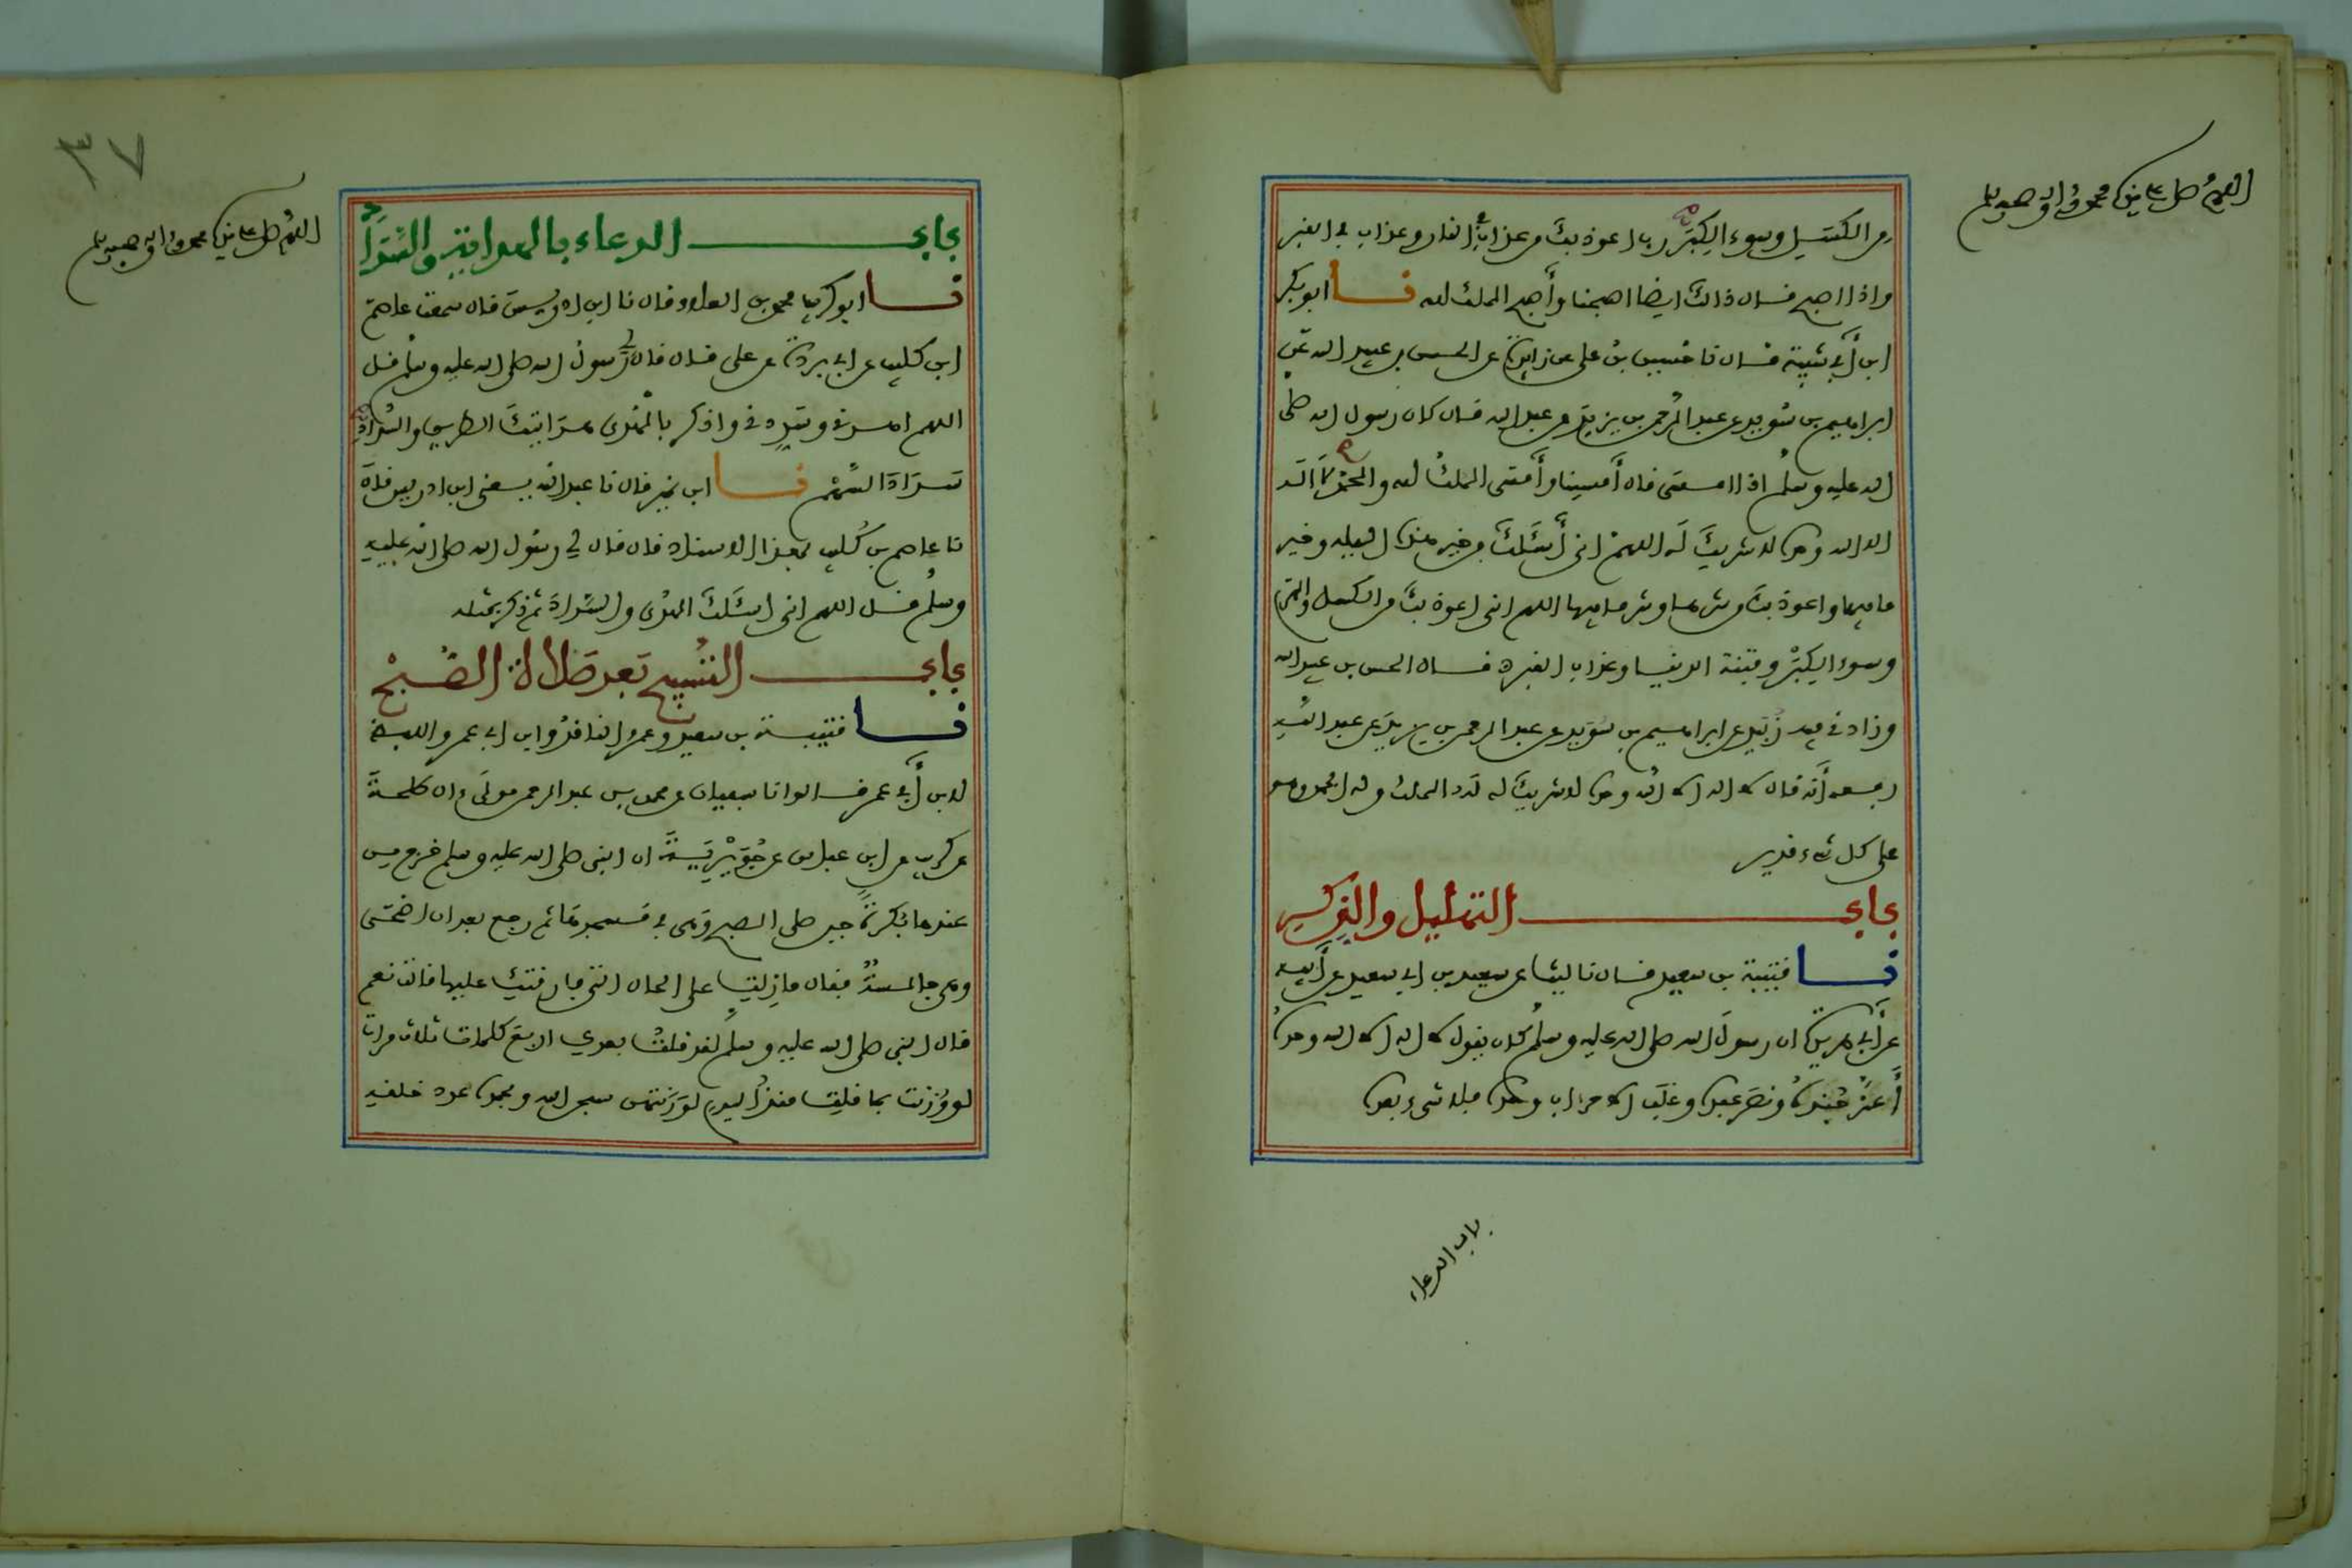 اللهم صل على سيدنا محمد وءاله وصحبه وسلم
من الكسل وسوء الكبر رب اعوذ بك من عذاب في النار وعذاب في القبر
واذا اصبح قال ذالك ايضا اصبحنا وأصبح الملك لله نا ابو بكر
ابن أبي شيبة قال نا حسين بن علي عن زايدة عن الحسن بن عبيد الله عن
ابراهيم بن سُويد عن عبد الرحمن بن يزيد عن عبد الله قال كان رسول الله صلى
الله عليه وسلم اذا امسى قال أمسينا وأمسى الملك لله والحمد لله لا اله
الا الله وحده لا شريك له اللهم اني أسئلك من خير هذه الليلة وخير
ما فيها واعوذ بك من شرها وشر ما فيها اللهم اني اعوذ بك من الكسل والهرم
وسوء الكبر وفتنة الدنيا وعذاب القبر قال الحسن بن عبيد الله
وزادني فيه زبيد عن ابراهيم بن سُويد عن عبد الرحمن بن يزيد عن عبد الله
رفعه أنه قال لا اله الا الله وحده لا شريك له له الملك وله الحمد وهو
على كل شيء قدير
باب التهليل والذكر
نا قتيبة بن سعيد قال نا ليث عن سعيد بن ابي سعيد عن أبيه
عن أبي هريرة ان رسول الله صلى الله عليه وسلم كان يقول لا اله الا الله وحده
أعز جنده ونصر عبده وغلب الاحزاب وحده فلا شيء بعده
باب الدعاء
٣٧
اللهم صل على سيدنا محمد وءاله وصحبه وسلم
باب الدعاء بالهداية والسداد
نا ابو كريب محمد بن العلاء قال نا ابن ادريس قال سمعت عاصم
ابن كليب عن ابي بردة عن علي قال قال لي رسول الله صلى الله عليه وسلم قل
اللهم اهدني وسددني واذكر بالهدى هدايتك الطريق والسداد
سداد السهم نا ابن نمير قال نا عبد الله يعني ابن ادريس قال
نا عاصم بن كليب بهذا الاسناد قال قال لي رسول الله صلى الله عليه
وسلم قل اللهم اني اسئلك الهدى والسداد ثم ذكر بمثله
باب التسبيح بعد صلاة الصبح
نا قتيبة بن سعيد وعمرو الناقد وابن ابي عمر واللفظ
لابن أبي عمر قالوا نا سفيان عن محمد بن عبد الرحمن مولى ءال طلحة
عن كريب عن ابن عباس عن جويرية ان النبي صلى الله عليه وسلم خرج من
عندها بُكرة حين صلى الصبح وهي في مسجدها ثم رجع بعد ان اضحى
وهي جالسة فقال ما زلت على الحال التي فارقتك عليها قالت نعم
قال النبي صلى الله عليه وسلم لقد قلت بعدك اربع كلمات ثلاث مرات
لو وُزنت بما قلت منذ اليوم لوزنتهن سبحان الله وبحمده عدد خلقه